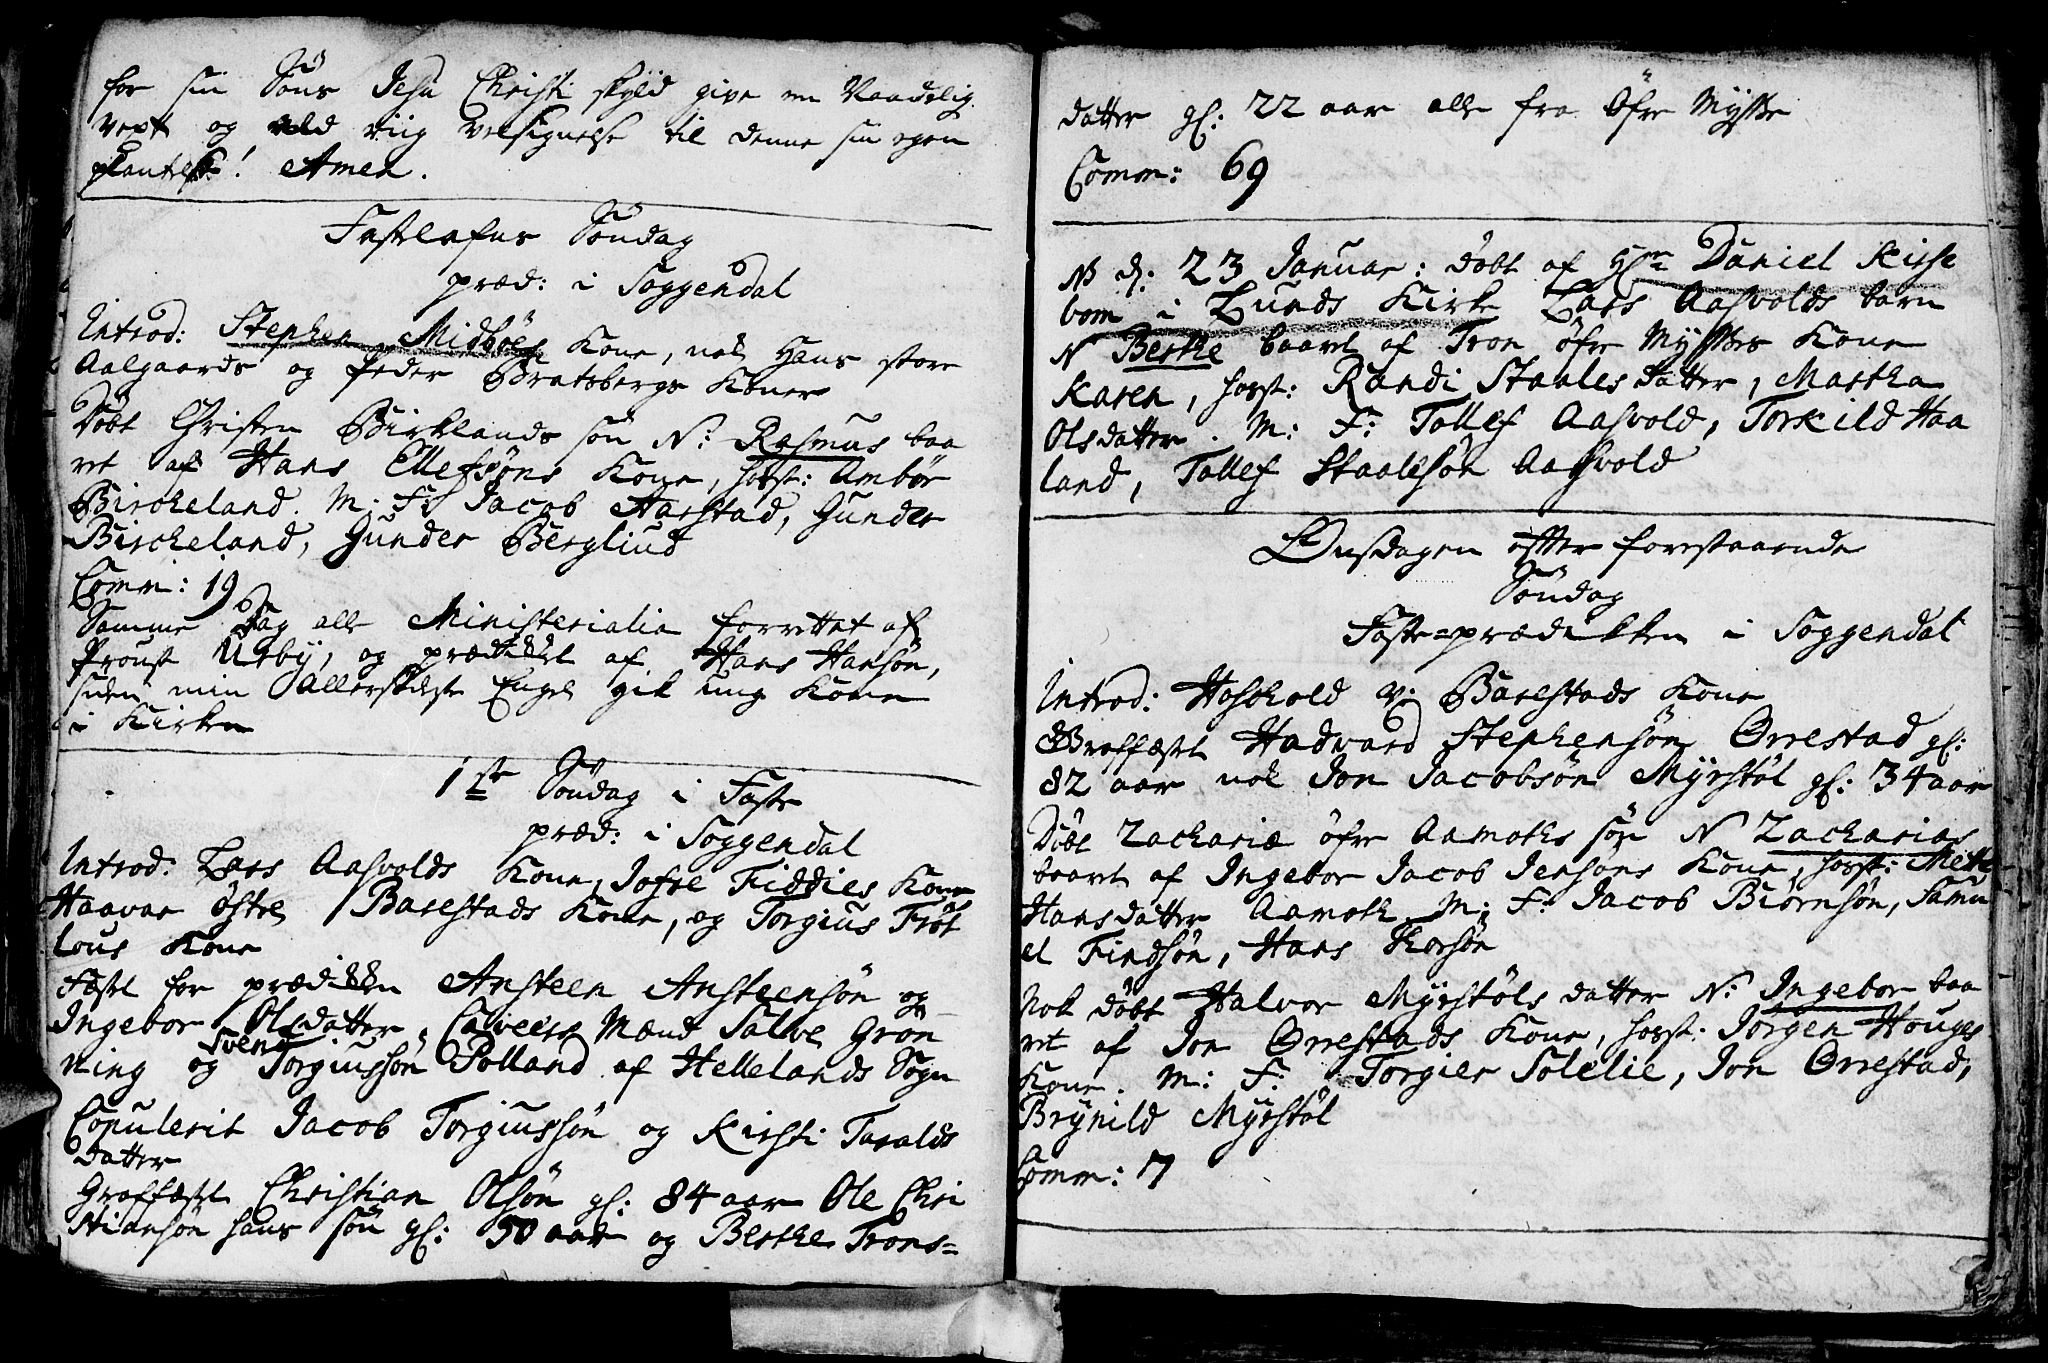 for sin Søns Jesu Christi skyld give en Naadelig
vext og riig velsignelse til denne sin egen
plantelse! Amen.
Fastelafns Søndag
præd: i Soggendal
Introd: Stephen Midbøes Kone, nok Hans store
Aalgaards og Peder Bratsbergs Koner
Døbt Christen Birklands søn N: Rasmus baa
ret af Hans Ellefsøns Kone, hosst: Ambør
Bircheland. M: F: Jacob Aarstad, Gunder
Bircheland, Gunder Bergliud
Comm: 19
Samme Dag alle Ministerialia forrettet af
Proust Urby, og prædikket af Hans Hansøn,
siden min Allerkiereste Engel gik ung Kone
i Kirken
1ste Søndag i Faste
præd: i Soggendal
Introd: Lars Aasvolds Kone, Jofre Fiddies Kone
Haavar østre Barestads Kone, og Torgius Frøt
lous Kone
Fæst for prædikken Ansteen Ansteensøn og
Ingebor Olsdatter, Caveers Mænd Salve Grøn
ning og Svend Torgiussøn Polland af Hellelands Sogn
Copulerit Jacob Torgiussøn og Kirsti Taralds
datter
Graffæstet Christian Olsøn gl: 84 aar Ole Chri
stiansøn hans søn gl: 50 aar og Berthe Trons=
datter gl: 22 aar alle fra Øfre Mysse
Comm: 69
NB d: 23 Januar: døbt af Hr Daniel Kirse
bom i Lunds Kirke Lars Aasvolds barn
N Berthe baaret af Tron øfre Mysses Kone
Karen, hosst: Randi Staalesdatter, Martha
Olsdatter. M: F: Tollef Aasvold, Torkild Haa
land, Tollef Staalesøn Aasvold
Onsdagen efter forestaaende
Søndag
Faste=prædikken i Soggendal
Introd: Hoskold v: Barestads Kone
Graffæstet Hadvard Stephensøn Ørrestad gl:
82 aar nok Jon Jacobsøn Myrstøl gl: 34 aar
Døbt Zachariæ øfre Aamoths søn N Zacharias
baaret af Ingebor Jacob Jensøns Kone, hosst: Mette
Hansdatter Aamoth. M: F: Jacob Biørnsøn, Samu
el Findsøn, Hans Thorsøn
Nok døbt Halvor Myrstøls datter N: Ingebor baa
ret af Jon Ørrestads Kone, hosst: Jørgen Houges
Kone. M: F: Torgier Solelie, Jon Ørrestad,
Brynild Myrstøl
Comm: 7